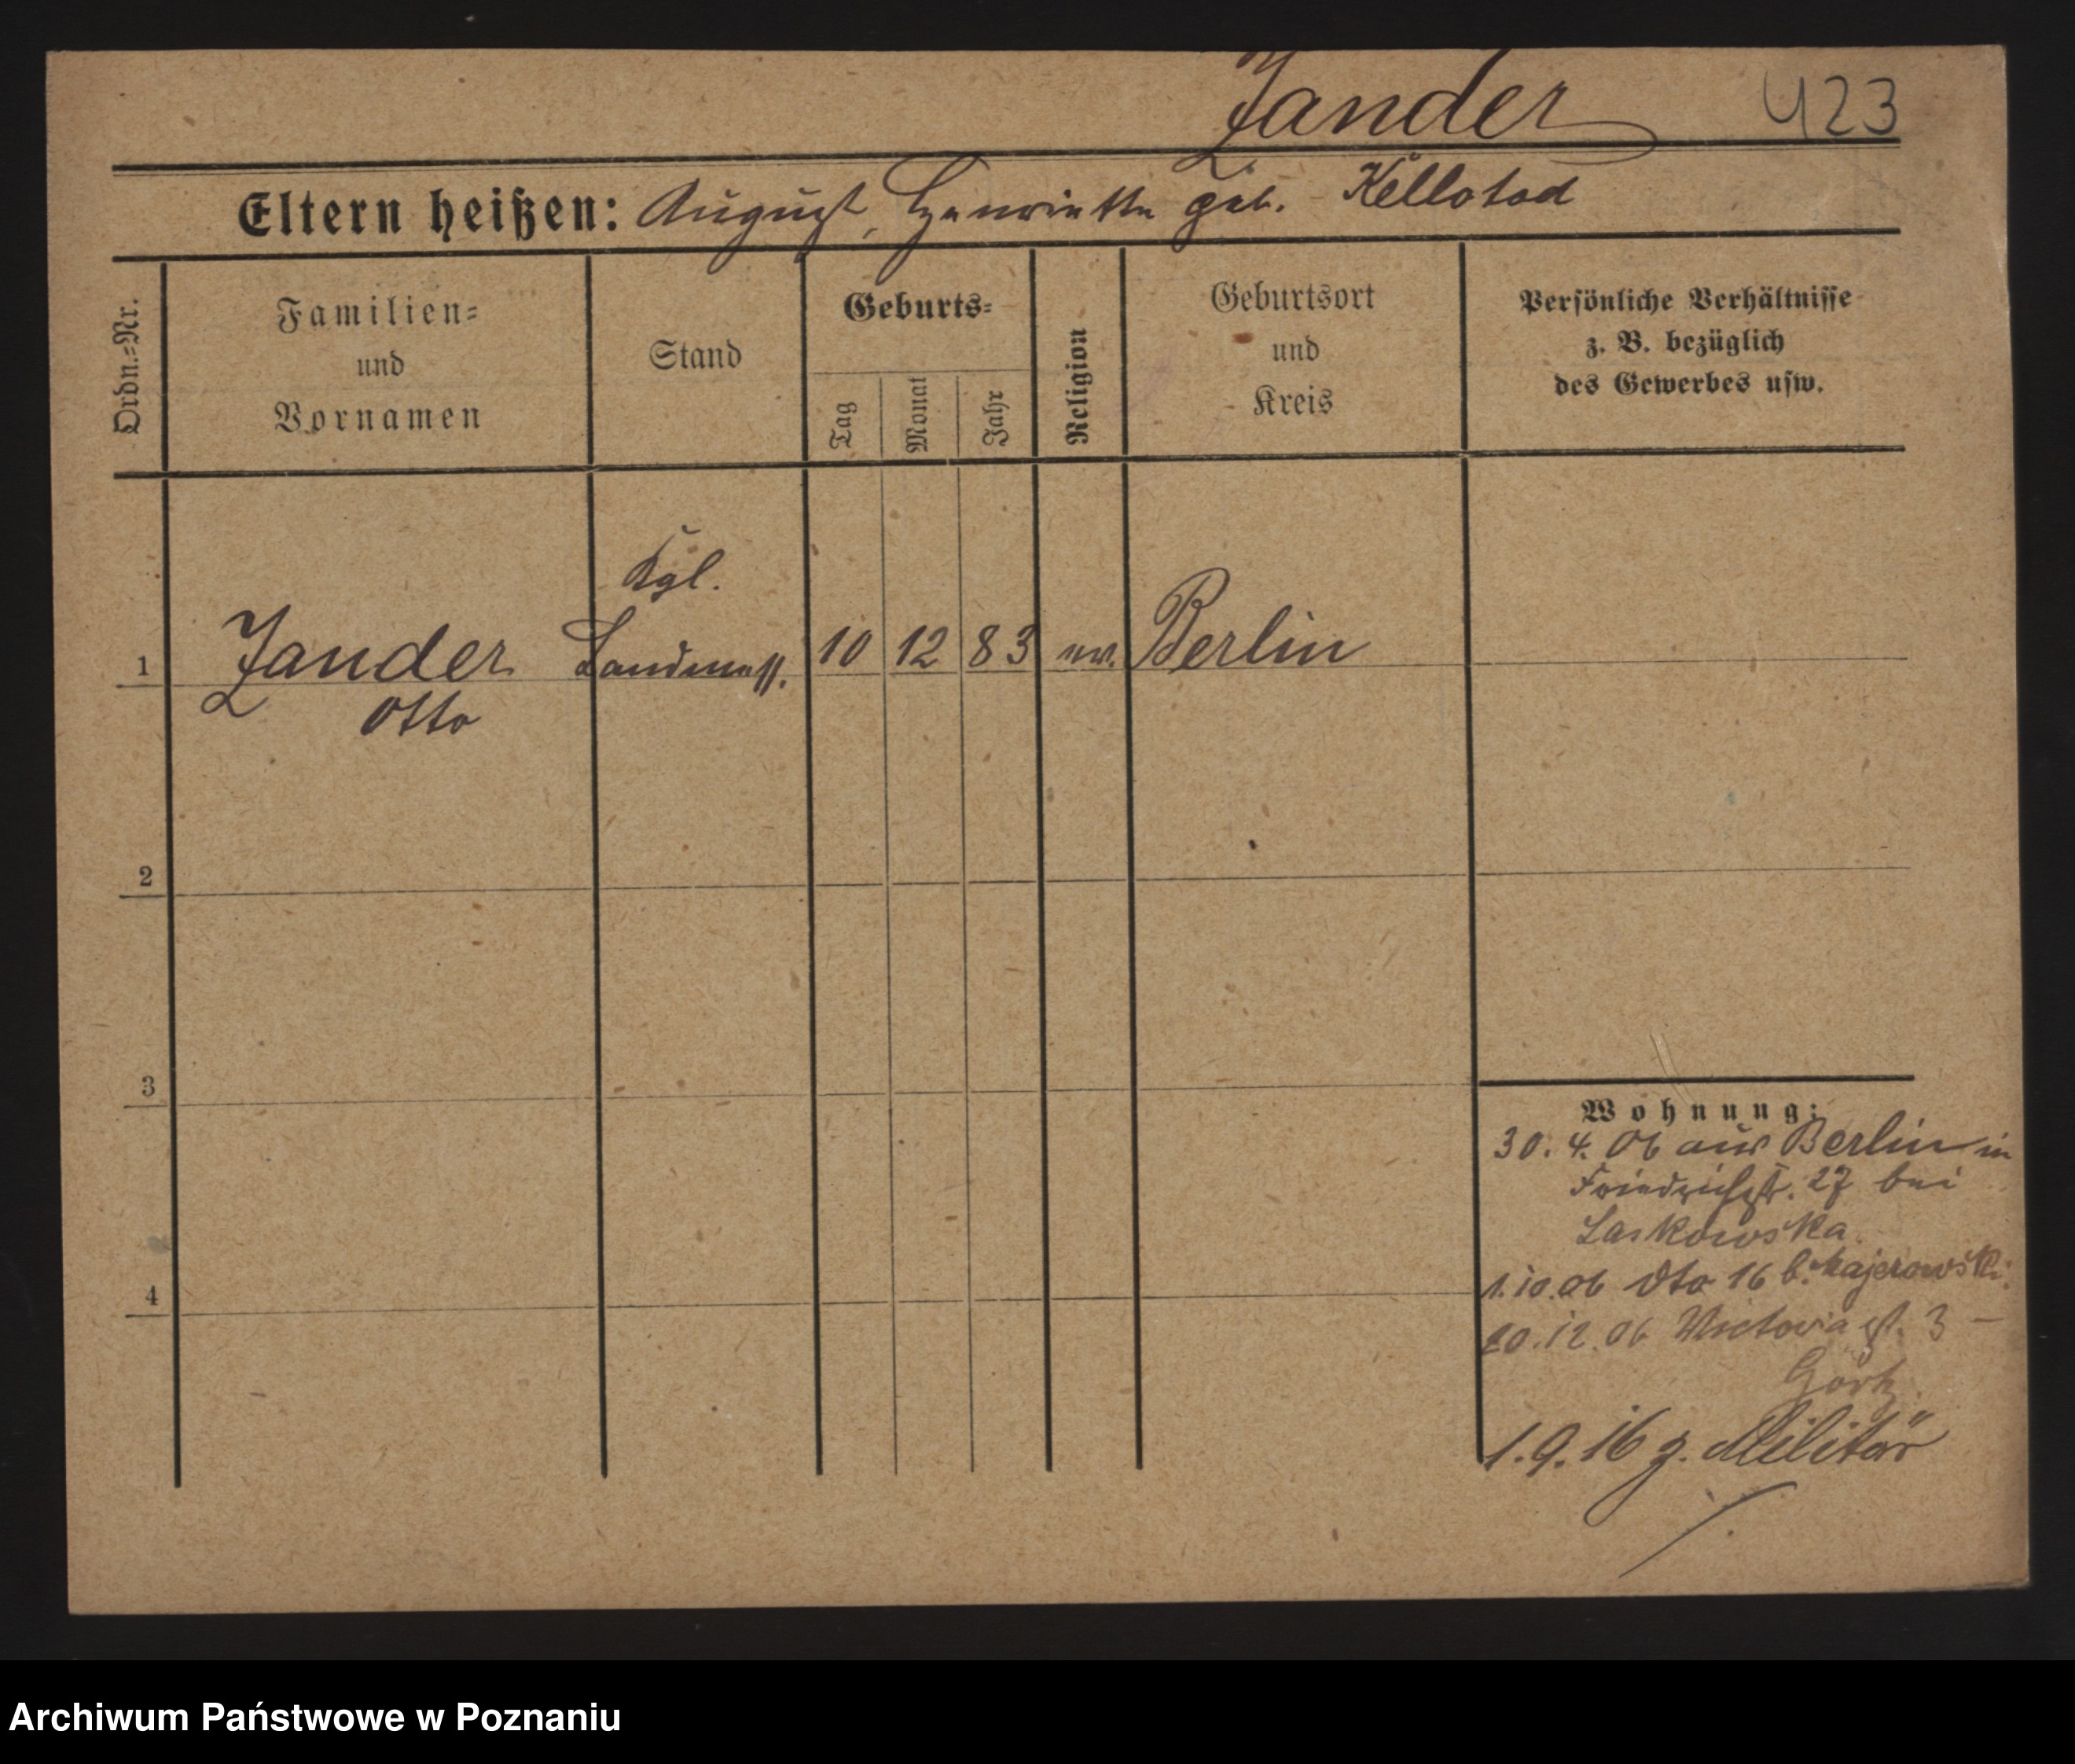 Zander 423
Eltern heißen: August, Henriette geb. Kellotad
Ordn.=Nr.
Familien=
und
Vornamen
Stand
Geburts=
Tag
Monat
Jahr
Religion
Geburtsort
und
Kreis
Persönliche Verhältnisse
z. B. bezüglich
des Gewerbes usw.
Kgl.
1 Zander Landmess. 10 12 83 ev. Berlin
Otto
2
3
Wohnung:
30. 4. 06 aus Berlin in
Friedrichstr. 27 bei
Laskowska.
4
1.10.06 dto 16 b. Majerowski.
20.12.06 Victoria st. 3 –
1.9.16 z. Militär
Archiwum Państwowe w Poznaniu